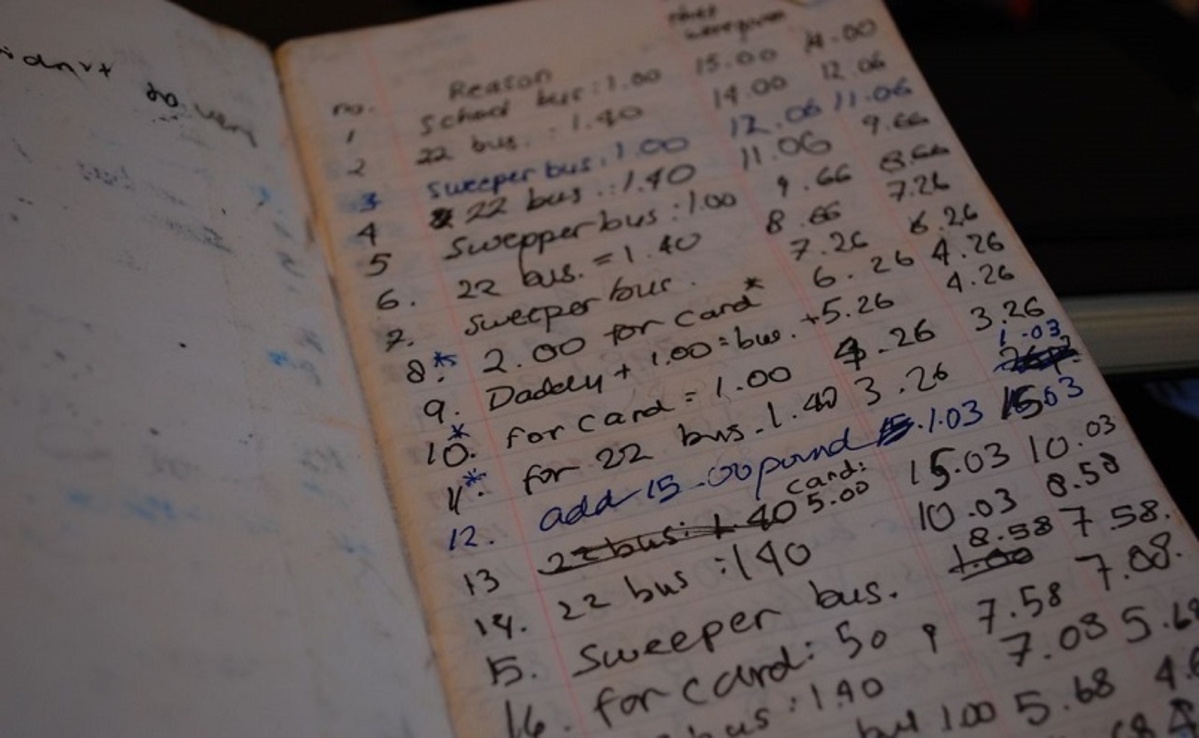 no. Reason
1 School bus: 1.00 15.00 14.00
2 22 bus. : 1.40 14.00 12.06
3 Sweeper bus: 1.00 12.06 11.06
4 22 bus .: 1.40 11.06 9.66
5 Swepper bus: 1.00 9.66 8.66
6. 22 bus. = 1.40 8.66 7.26
7. Sweeper bus. 7.26 6.26
8.* 2.00 for card* 6.26 4.26
9. Daddy + 1.00 = bus. +5.26 4.26
10.* for card = 1.00 4.26 3.26
11.* for 22 bus - 1.40 3.26 1.03
12. add 15-00 pound 1.03 15
13 22 bus: 1.40 card: 5.00 15.03 10.03
14. 22 bus :140 10.03 8.58
15. Sweeper bus. 1.00 8.58 7.58.
16. for card: 50 p 7.58 7.08.
bus : 1.40 7.08 5.68
1.00 5.68